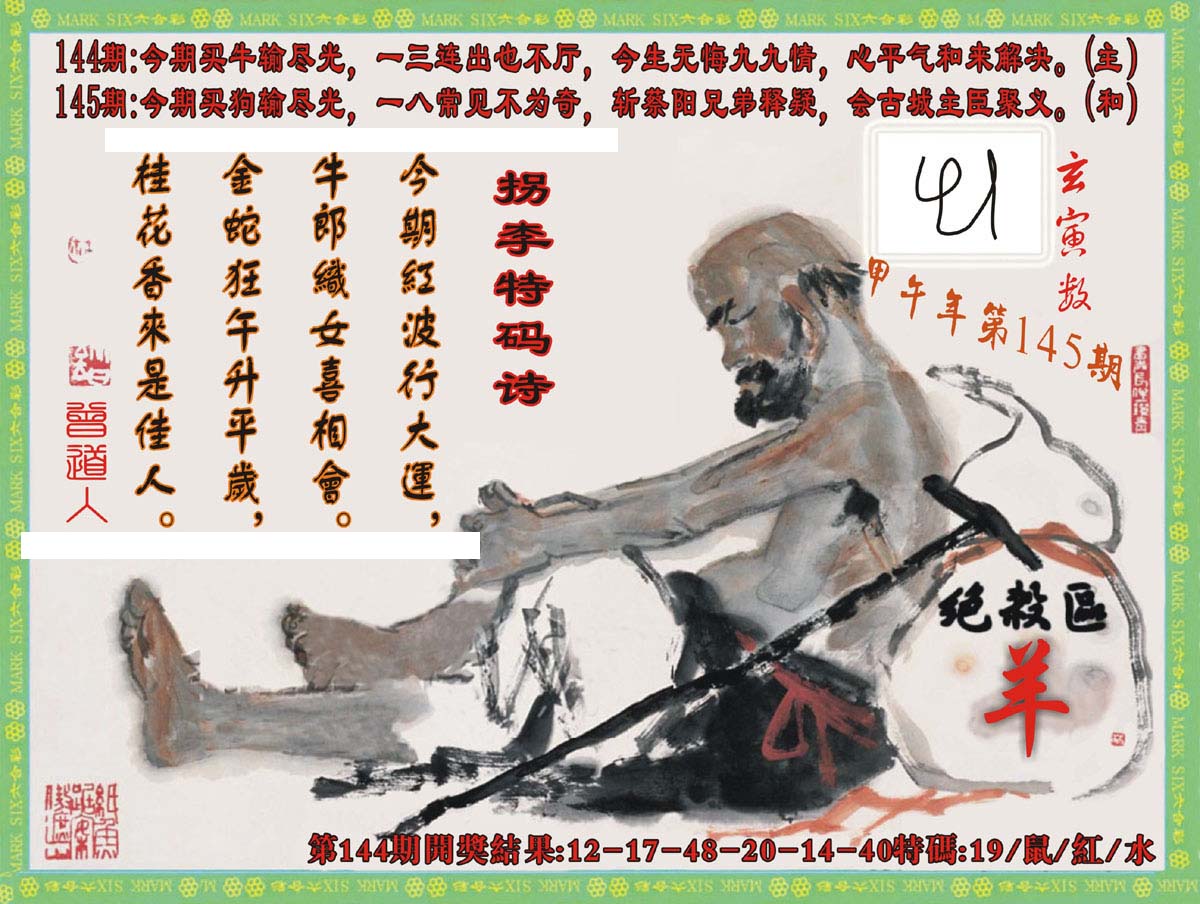 MARK SIX六合彩
144期:今期买牛输尽光，一三连出也不厅，今生无悔九九情，心平气和来解决。(主)
145期:今期买狗输尽光，一八常见不为奇，斩蔡阳兄弟释疑，会古城主臣聚义。(和)
玄寅数
甲午年第145期
拐李特码诗
今期紅波行大運，
牛郎織女喜相會。
金蛇狂午升平歲，
桂花香來是佳人。
曾道人
绝殺區
羊
第144期開獎結果:12-17-48-20-14-40特碼:19/鼠/紅/水